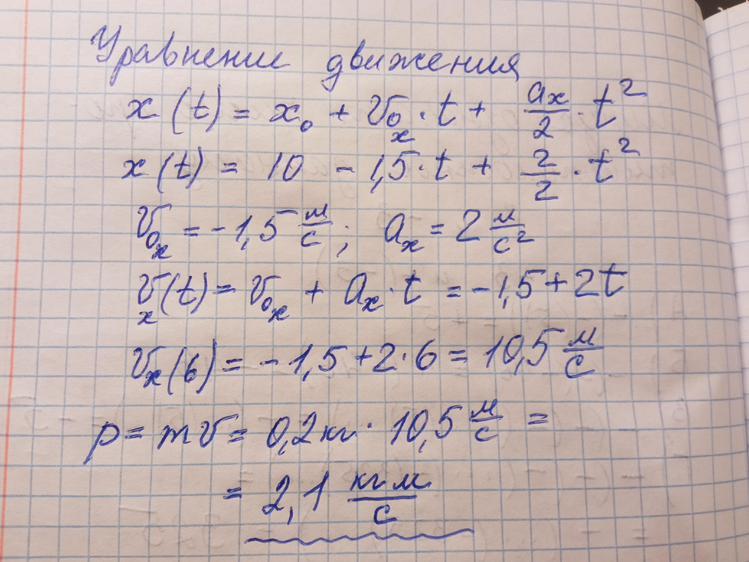 Уравнение движения
x(t) = x₀ + v₀ₓ · t + aₓ/2 · t²
x(t) = 10 - 1,5 · t + 2/2 · t²
v₀ₓ = -1,5 м/с; aₓ = 2 м/с²
vₓ(t) = v₀ₓ + aₓ · t = -1,5 + 2t
vₓ(6) = -1,5 + 2 · 6 = 10,5 м/с
p = mv = 0,2 кг · 10,5 м/с =
= 2,1 кг м/с